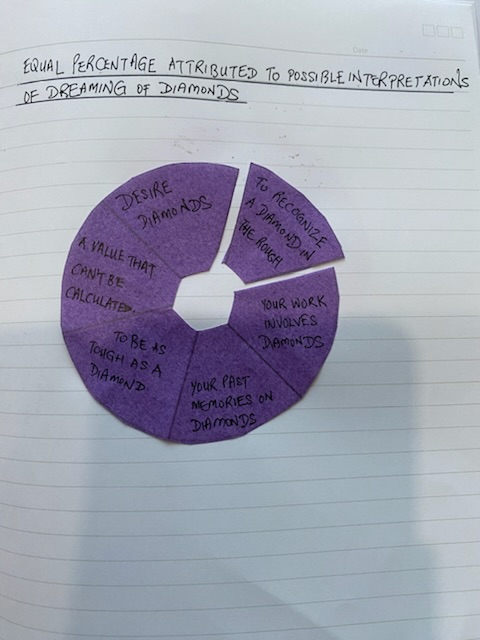 Date
EQUAL PERCENTAGE ATTRIBUTED TO POSSIBLE INTERPRETATIONS
OF DREAMING OF DIAMONDS
DESIRE
DIAMONDS
TO RECOGNIZE
A DIAMOND IN
THE ROUGH
A VALUE THAT
CAN'T BE
CALCULATED.
YOUR WORK
INVOLVES
DIAMONDS
TO BE AS
TOUGH AS A
DIAMOND
YOUR PAST
MEMORIES ON
DIAMONDS